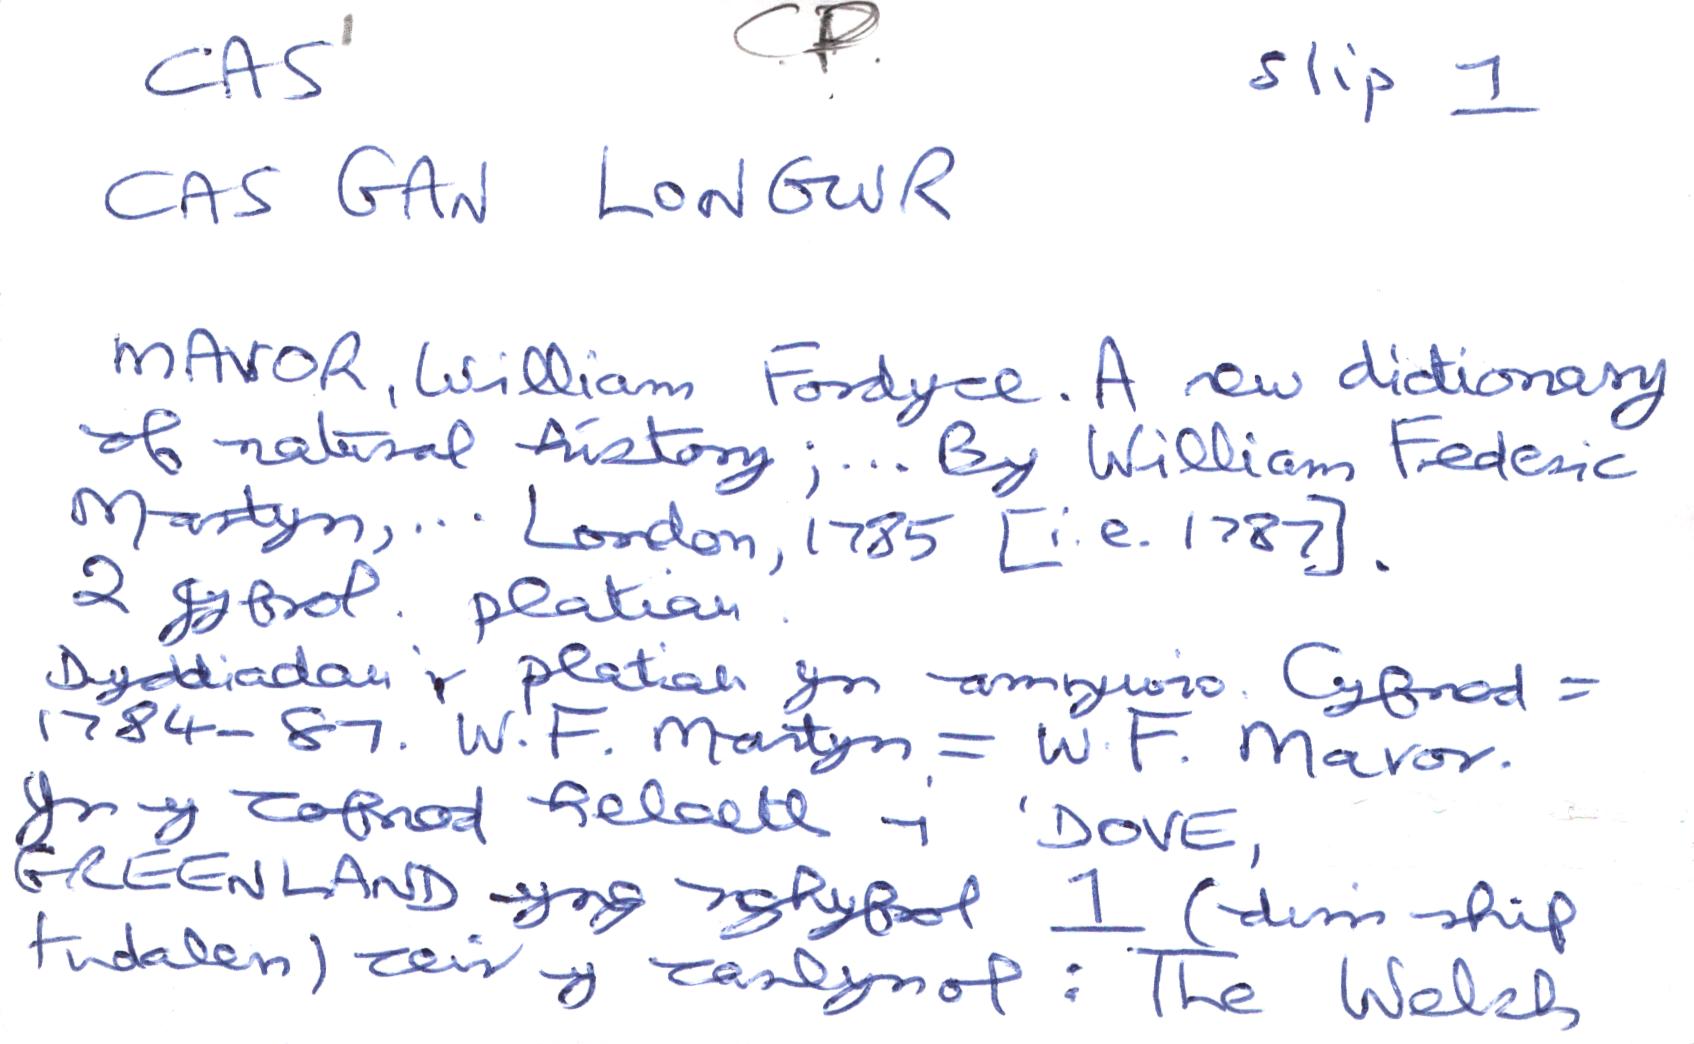 CAS¹ C.P. slip 1
CAS GAN LONGWR
MAVOR, William Fordyce. A new dictionary
of natural history; ... By William Federic
Martyn, ... London, 1785 [i.e. 1787].
2 gyfrol. platiau.
Dyddiadau'r platiau yn amrywio. Cyfnod =
1784-87. W.F. Martyn = W.F. Mavor.
Yn y cofnod helaeth i 'DOVE,
GREENLAND yng nghyfrol 1 (dim rhif
tudalen) ceir y canlynol: The Welsh